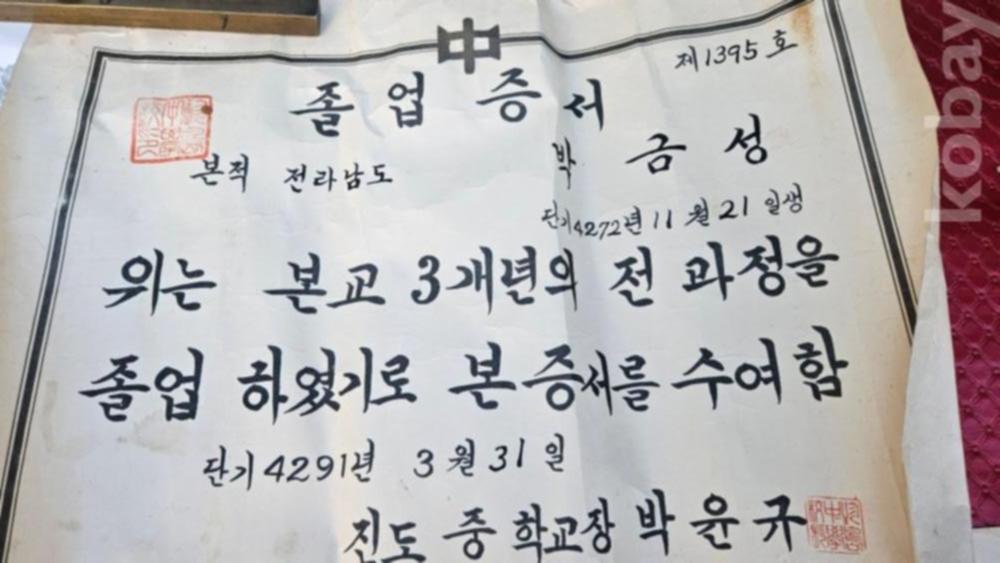 中
제1395호
졸업증서
본적 전라남도
박금성
단기4272년 11월 21일생
위는 본교 3개년의 전 과정을
졸업 하였기로 본 증서를 수여함
단기4291년 3월 31일
진도중학교장 박윤규
kobay